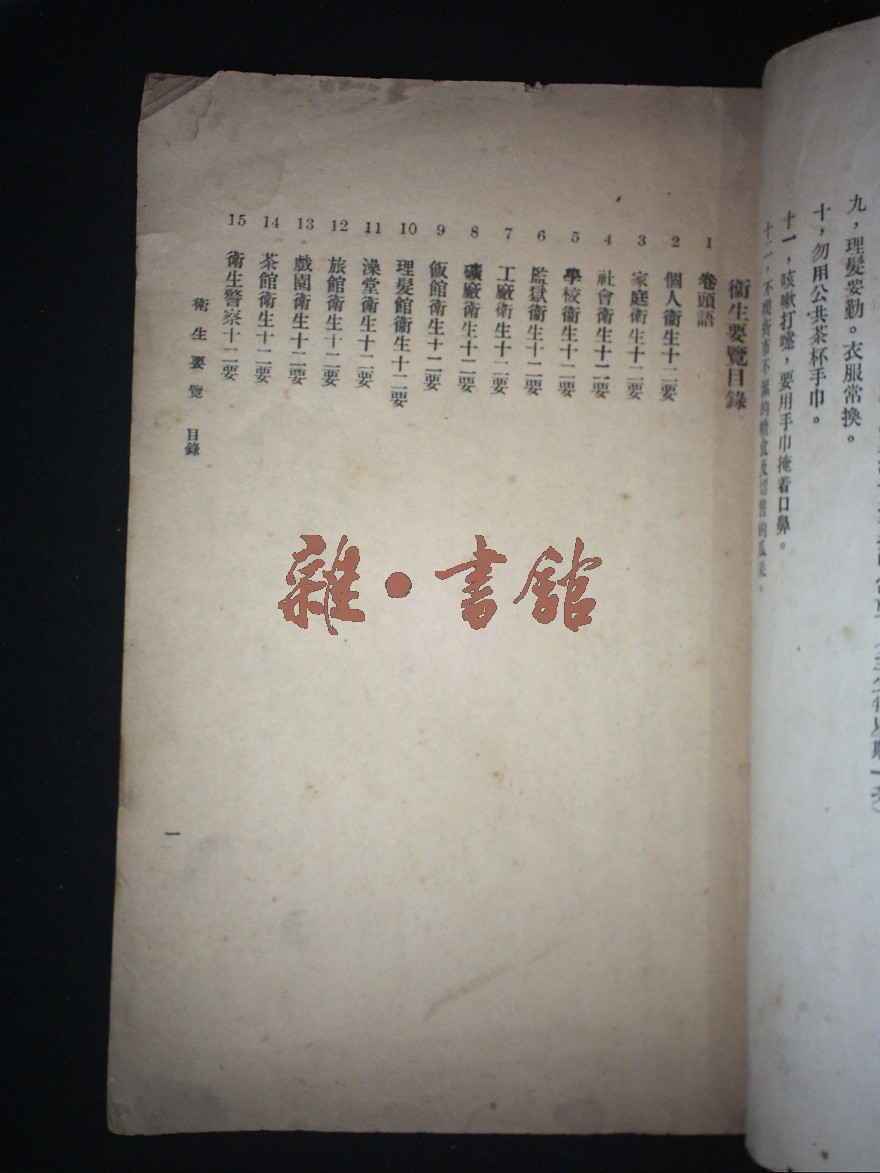 九，理髮要勤。衣服常換。
十，勿用公共茶杯手巾。
十一，咳嗽打噎，要用手巾掩着口鼻。
十二，不喫街市不潔的
衛生要覽目錄
1 卷頭語
2 個人衛生十二要
3 家庭衛生十二要
4 社會衛生十二要
5 學校衛生十二要
6 監獄衛生十二要
7 工廠衛生十二要
8 礦廠衛生十二要
9 飯館衛生十二要
10 理髮館衛生十二要
11 澡堂衛生十二要
12 旅館衛生十二要
13 戲園衛生十二要
14 茶館衛生十二要
15 衛生警察十二要
衛生要覽 目錄
一
雜·書館